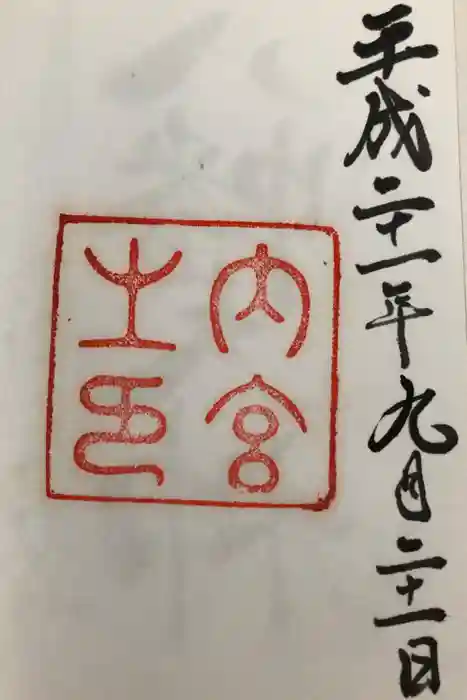 平成二十一年九月二十一日
内宮
之印